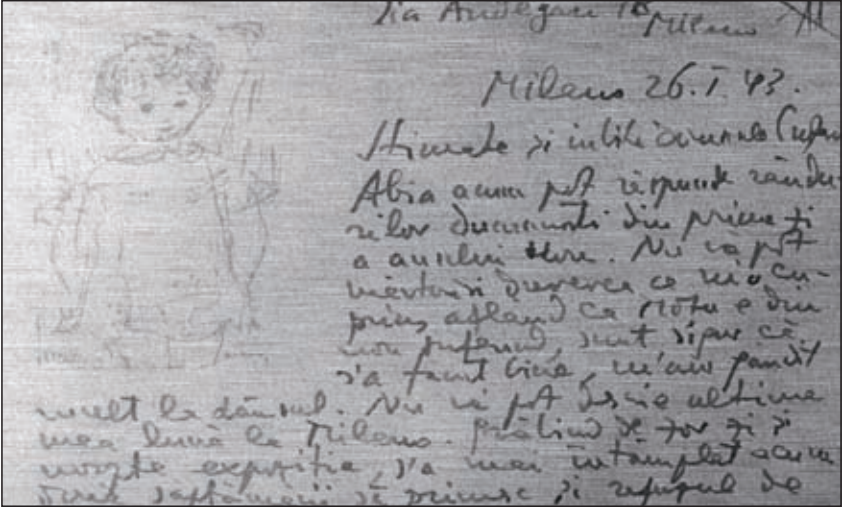 Via Andegari 18 Milano
Milano 26.I.43.
Stimate și iubite domnule
Abia acum pot răspunde rându-
rilor dumneavoastră din prima zi
a anului nou. Nu vă pot
mărturisi durerea ce m'a cu-
prins aflând că e din
nou suferind, sunt sigur că
s'a făcut bine, m'am gândit
mult la dânsul. Nu vă pot descrie ultima
mea lună la Milano. de zor zi și
noapte expoziția, s'a mai întâmplat acum
două săptămâni să primesc și refuzul de